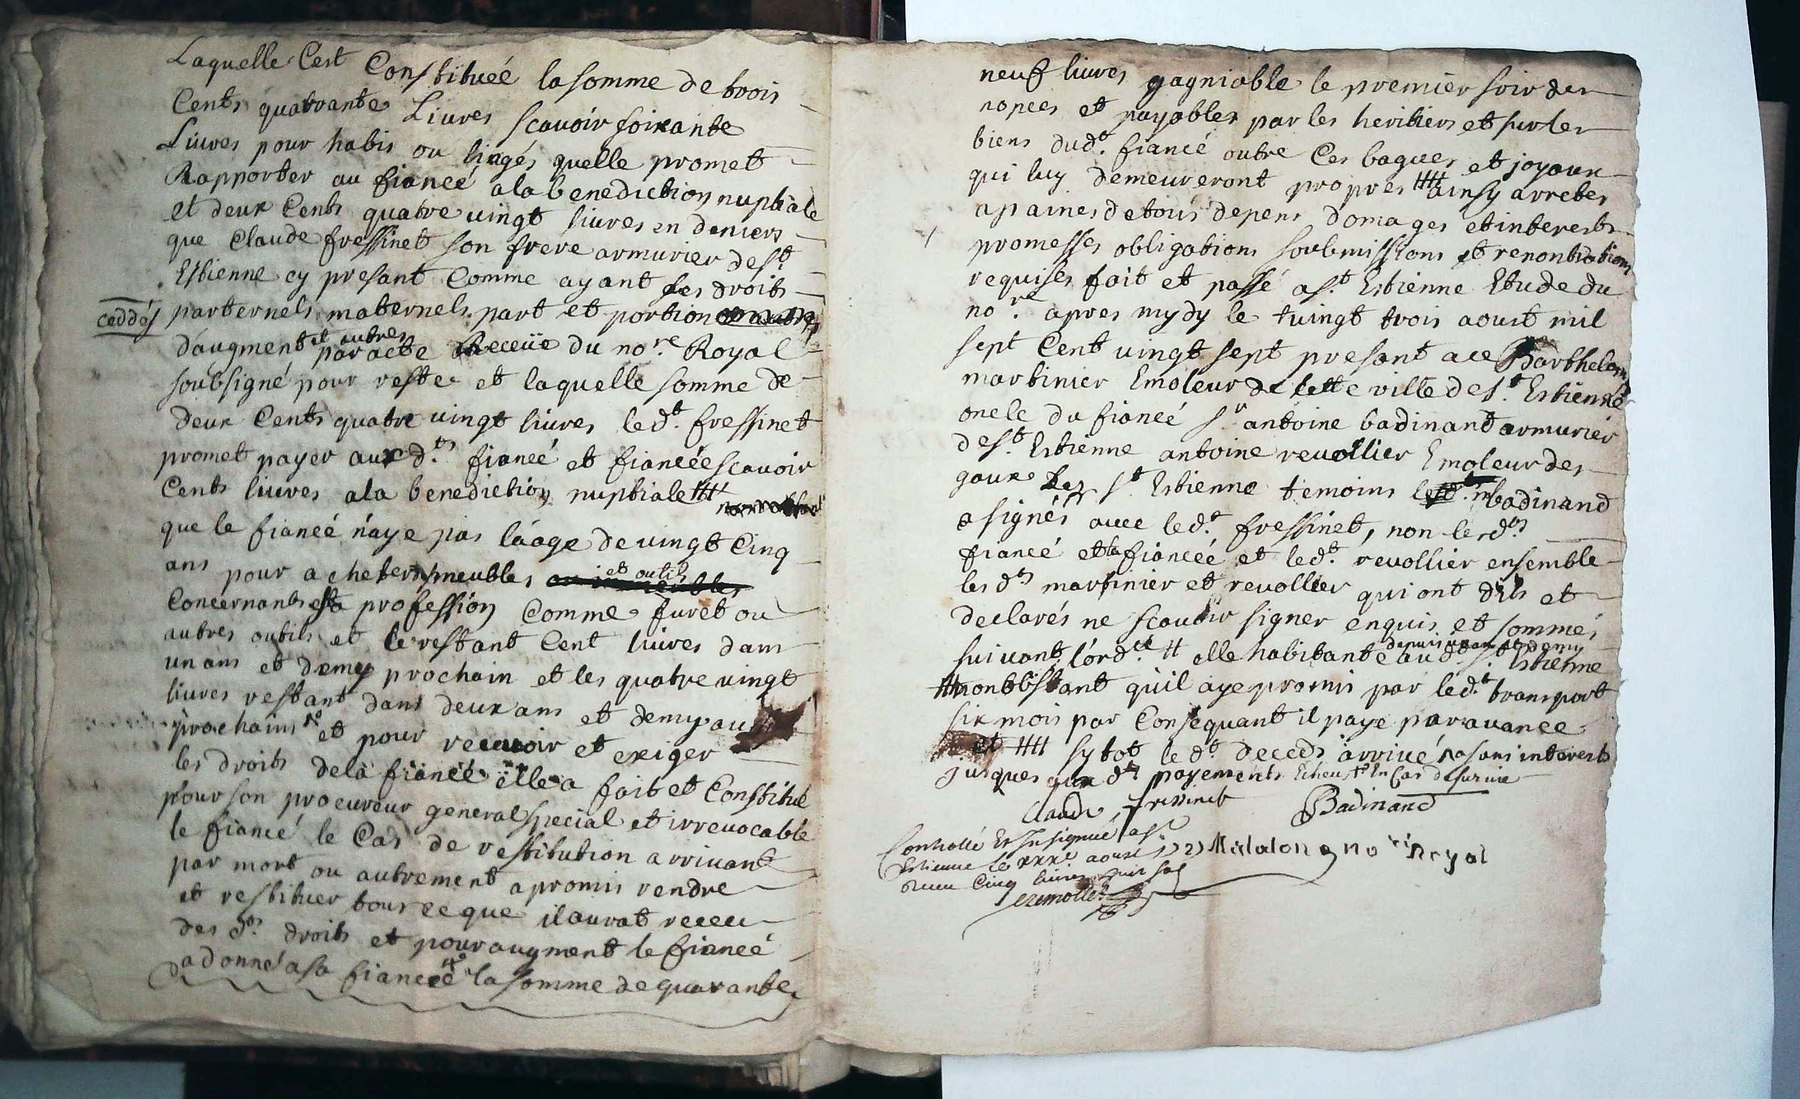 Laquelle c'est Constituéé la somme de trois
Cents quatrante Livres scavoir soixante
Livres pour habis ou lingés quelle promet
Rapporter au fiancé a la benediction nuptiale
et deux Cents quatre vingt livres en deniers
que Claude fressinet son frere armurier de st
Estienne cy presant Comme ayant ses droits
ceddés parternels maternels part et portion
d'augment et autres par acte Receüe du nore Royal
soubsigné pour reste et laquelle somme de
deux Cents quatre vingt livres led.t fressinet
promet payer aux d.ts fiancé et fiancéé scavoir
Cents livres a la benediction nuptiale
que le fiancéé n'aye pas láage de vingt Cinq
ans pour acheter meubles et outils
Concernants sa profession Comme furet ou
autres outils et le restant Cent livres dans
un ans et demy prochain et les quatre vingt
livres restant dans deux ans et demy aussi
prochains et pour recevoir et exiger
les droits de la fiancéé elle a fait et Constitué
pour son procureur general special et irrevocable
le fiancé le Cas de restitution arrivant
par mort ou autrement a promis rendre
et restituer tout ce que il aurat receu
des d.ts droits et pour augment le fiancé
a donné a sa fiancéé la somme de quarante
neuf livres gagniable le premier soir des
nopces et payables par les heritiers et sur les
biens dud.t fiancé outre Ces bagues et joyaux
qui luy demeureront propres # ainsy arretes
a paines de tous depens domages et interests
promesses obligations soubmissions et renontiations
requises fait et passé a s.t Estienne Etude du
no.re apres mydy le vingt trois aoust mil
sept Cent vingt sept presant ace Barthelemy
martinier Emoleur de Cette ville de s.t Estienne
oncle du fiancéé s.r antoine badinant armurier
de s.t Estienne antoine revollier Emoleur des
gaux Lez s.t Estienne temoins badinand
a signés avec led.t fressinet, non lesd.ts
fiancé et la fiancéé et led.t revollier ensemble
les d.ts martinier et revollier qui ont dits et
declarés ne scavoir signer enquis et sommés
suivant l'ord.ce # elle habitante depuis un an et demy aud.t s.t Estienne
# nonobstant qu'il aye promis par led.t transport
six mois par Consequant il paye par avance
et # sytot le d.t deceds arrivé sans interests
jusques aux d.ts payements Echeus En Cas de survie
Claude fressinet Badinand
Controllé Et Insignué a st
Estienne le xxxe aoust 1727 Matalon no.re Royal
Receu Cinq livres huit sols